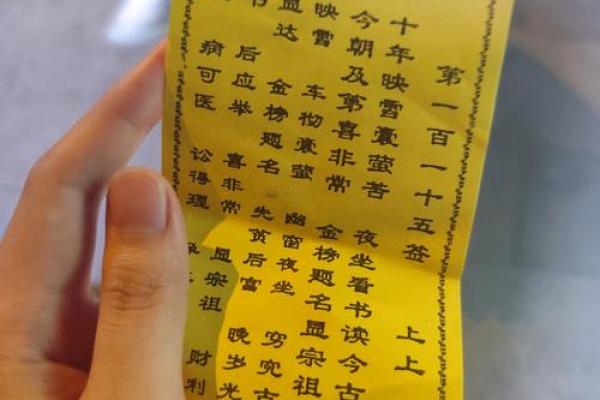 第一百一十五签 上上
十年映雪囊萤苦 夜坐看书读今古
今朝及第喜非常 金榜题名显宗祖
映雪 车彻囊萤 幽窗夜坐 穷究古
显达 金榜题名 先贫后富 晚岁光
书 后应举 喜非常 显宗祖
病可医 讼得理 财利